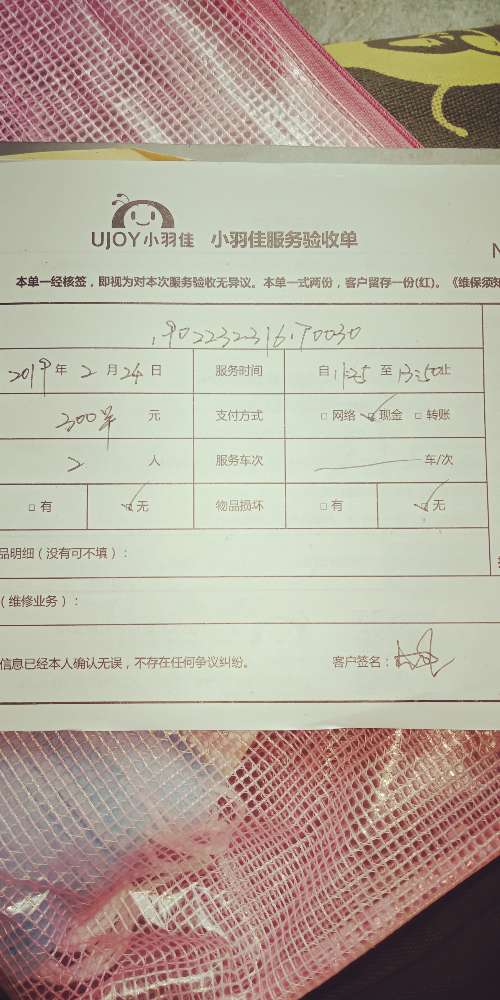 UJOY小羽佳 小羽佳服务验收单
本单一经核签，即视为对本次服务验收无异议。本单一式两份，客户留存一份(红)。《维保须知
2019年2月24日 服务时间 自11:25至13:50止
元 支付方式 □网络 ☑现金 □转账
2人 服务车次 车/次
□有 ☑无 物品损坏 □有 ☑无
品明细（没有可不填）：
（维修业务）：
信息已经本人确认无误，不存在任何争议纠纷。 客户签名：